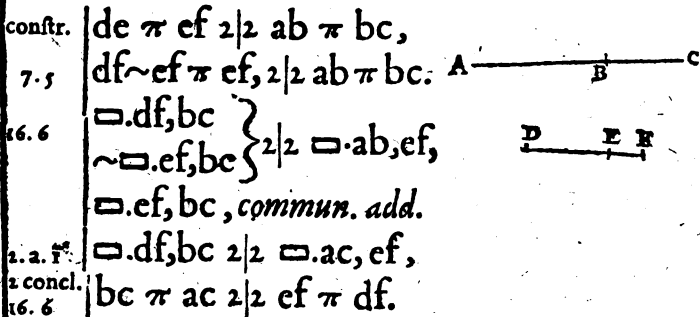 conſtr. de π ef 2|2 ab π bc,
7.5 df~ef π ef, 2|2 ab π bc.
16.6 ▭.df,bc
~▭.ef,bc } 2|2 ▭.ab,ef,
▭.ef, bc, commun. add.
2.a.1 ▭.df,bc 2|2 ▭.ac, ef,
2 concl. bc π ac 2|2 ef π df.
16.6
A B C
D E F